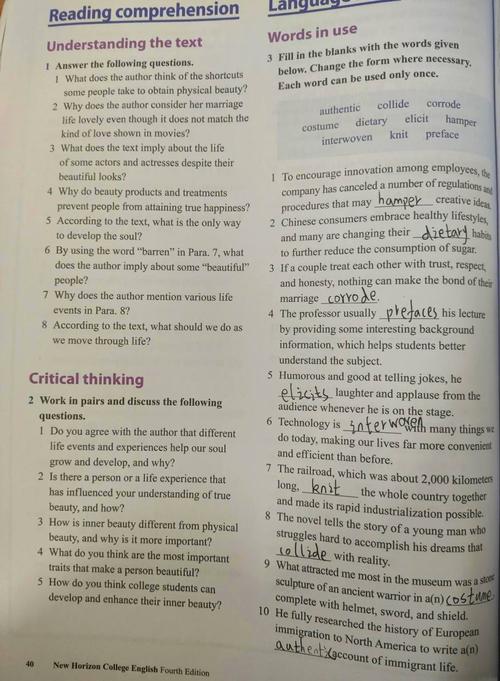 Reading comprehension
Understanding the text
1 Answer the following questions.
1 What does the author think of the shortcuts
some people take to obtain physical beauty?
2 Why does the author consider her marriage
life lovely even though it does not match the
kind of love shown in movies?
3 What does the text imply about the life
of some actors and actresses despite their
beautiful looks?
4 Why do beauty products and treatments
prevent people from attaining true happiness?
5 According to the text, what is the only way
to develop the soul?
6 By using the word "barren" in Para. 7, what
does the author imply about some "beautiful"
people?
7 Why does the author mention various life
events in Para. 8?
8 According to the text, what should we do as
we move through life?
Critical thinking
2 Work in pairs and discuss the following
questions.
1 Do you agree with the author that different
life events and experiences help our soul
grow and develop, and why?
2 Is there a person or a life experience that
has influenced your understanding of true
beauty, and how?
3 How is inner beauty different from physical
beauty, and why is it more important?
4 What do you think are the most important
traits that make a person beautiful?
5 How do you think college students can
develop and enhance their inner beauty?
40 New Horizon College English Fourth Edition
Language
Words in use
3 Fill in the blanks with the words given
below. Change the form where necessary.
Each word can be used only once.
authentic collide corrode
costume dietary elicit hamper
interwoven knit preface
1 To encourage innovation among employees, the
company has canceled a number of regulations and
procedures that may hamper creative ideas.
2 Chinese consumers embrace healthy lifestyles,
and many are changing their dietary habits
to further reduce the consumption of sugar.
3 If a couple treat each other with trust, respect,
and honesty, nothing can make the bond of their
marriage corrode.
4 The professor usually prefaces his lecture
by providing some interesting background
information, which helps students better
understand the subject.
5 Humorous and good at telling jokes, he
elicits laughter and applause from the
audience whenever he is on the stage.
6 Technology is interwoven with many things we
do today, making our lives far more convenient
and efficient than before.
7 The railroad, which was about 2,000 kilometers
long, knit the whole country together
and made its rapid industrialization possible.
8 The novel tells the story of a young man who
struggles hard to accomplish his dreams that
collide with reality.
9 What attracted me most in the museum was a stone
sculpture of an ancient warrior in a(n) costume
complete with helmet, sword, and shield.
10 He fully researched the history of European
immigration to North America to write a(n)
authentic account of immigrant life.